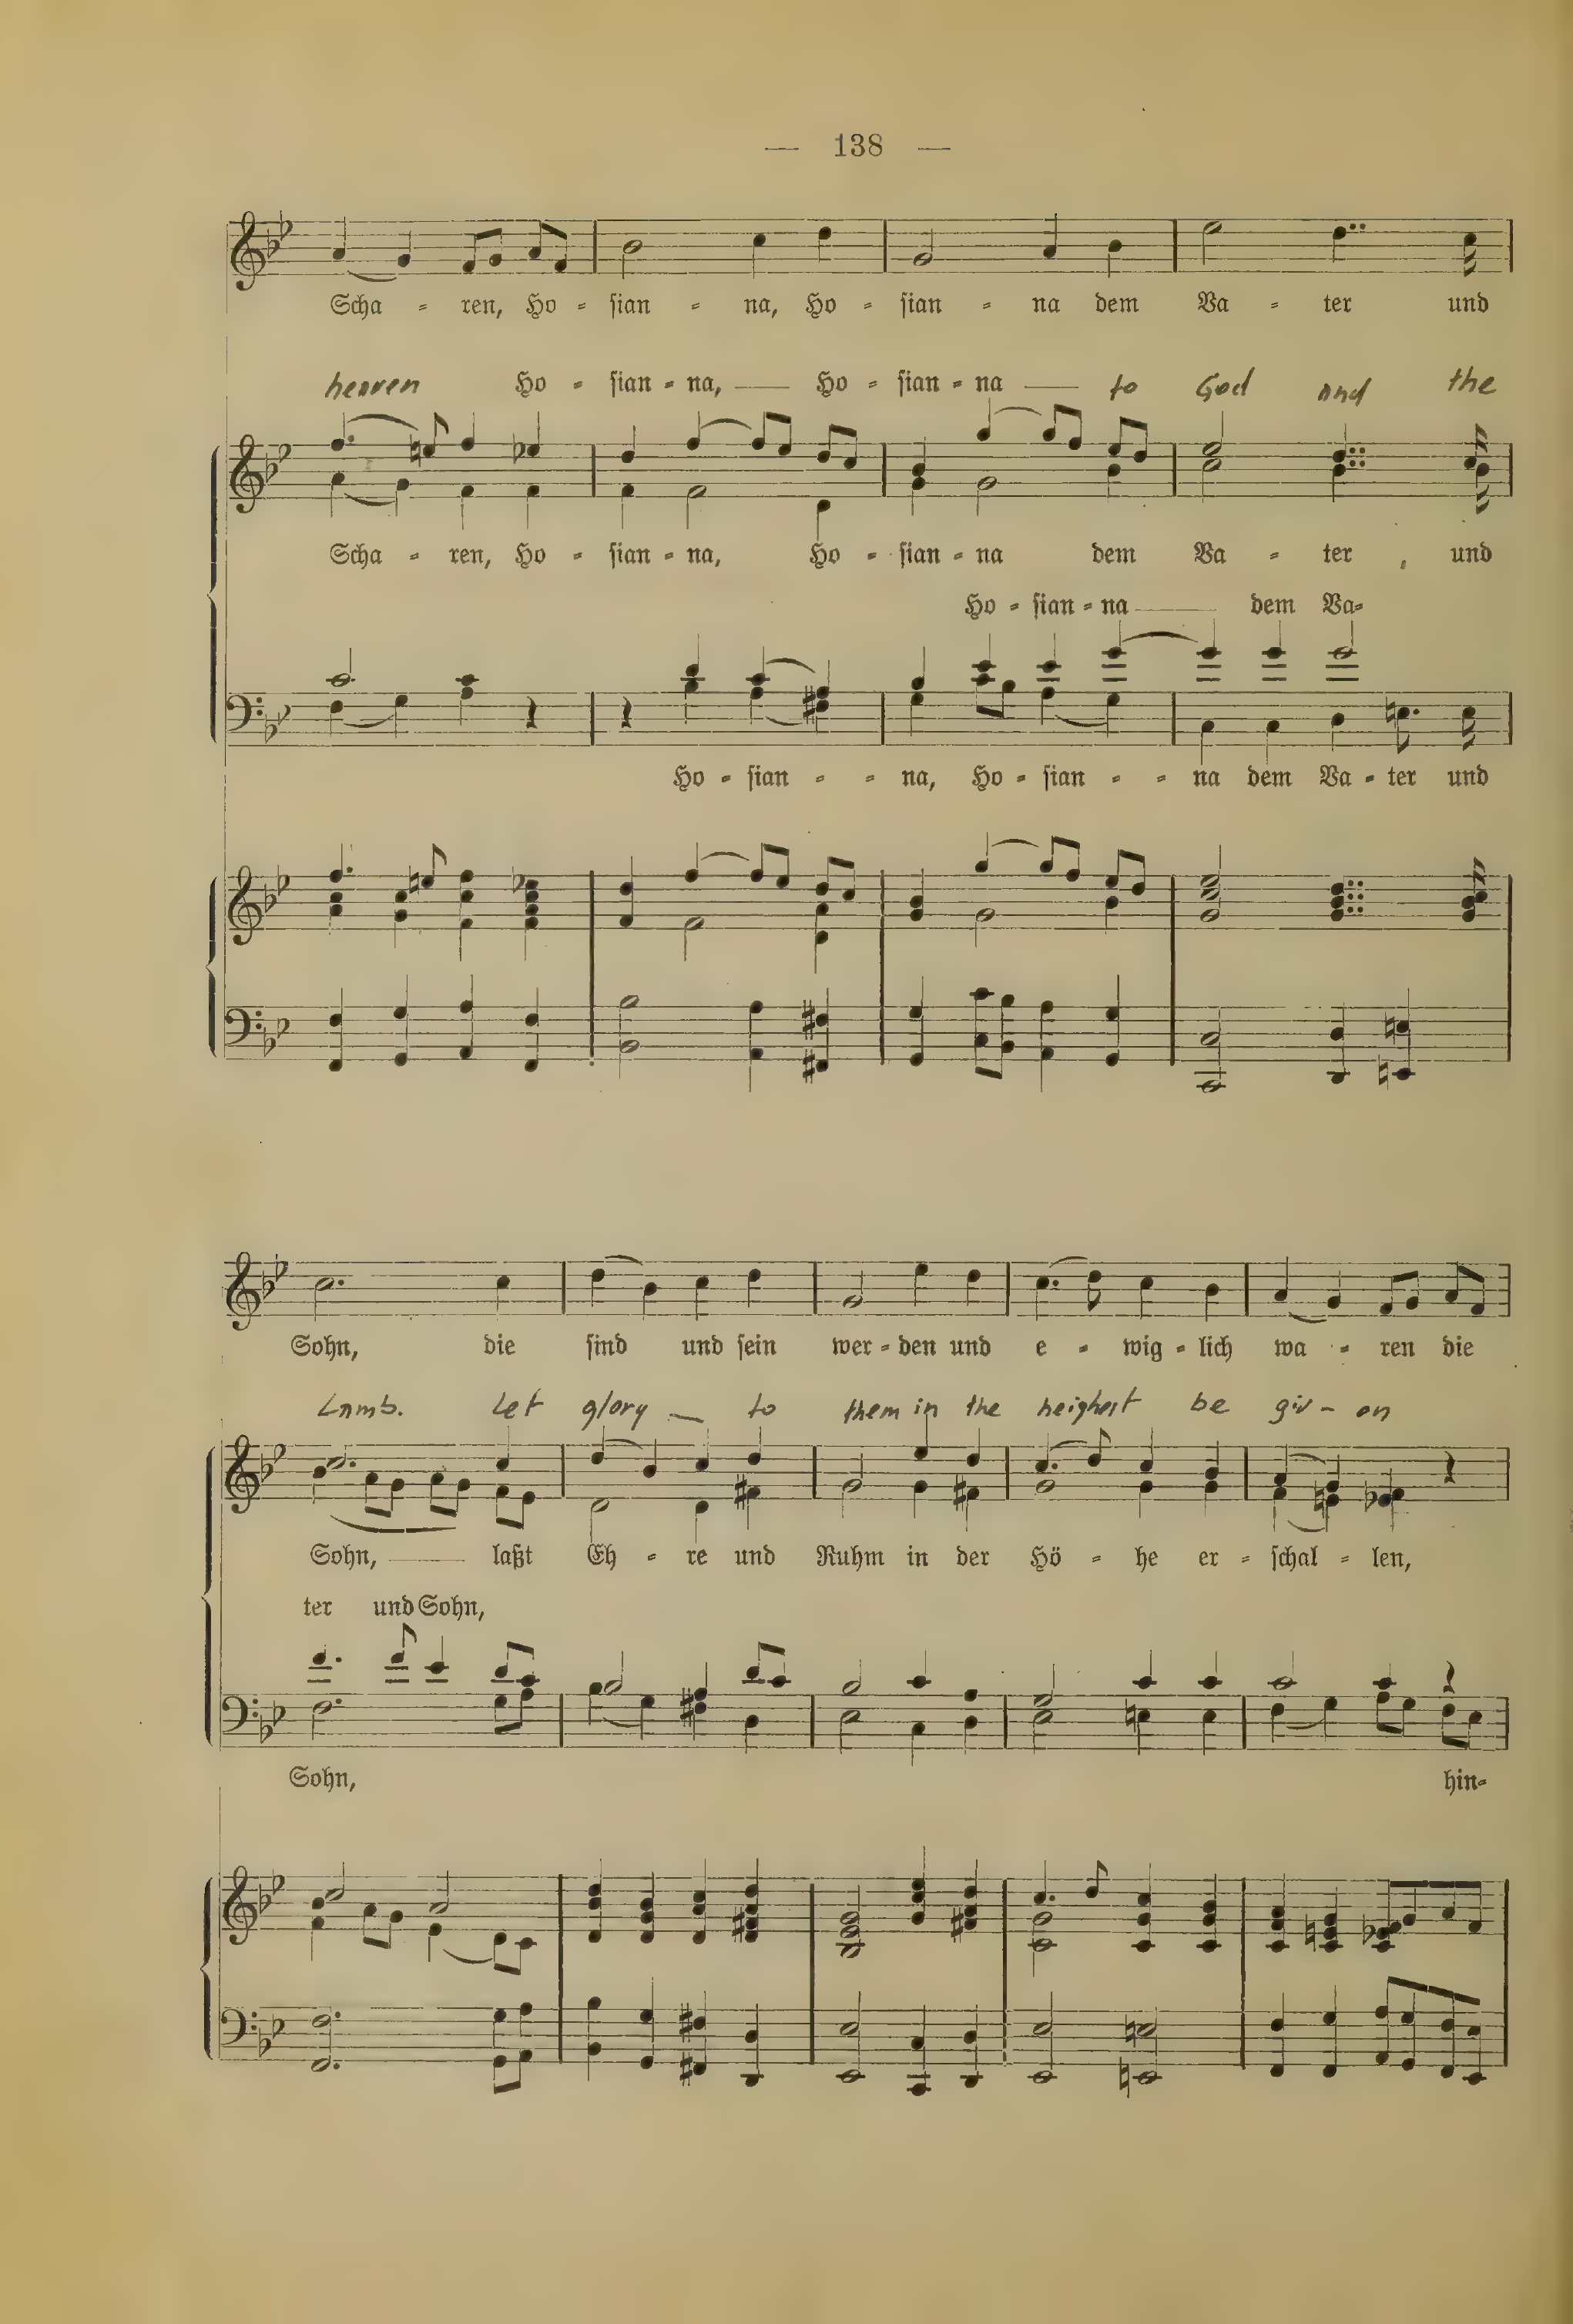 — 138 —
Scha - ren, Ho - sian - na, Ho - sian - na dem Va - ter und
heaven Ho - sian - na, — Ho - sian - na — to God and the
Scha - ren, Ho - sian - na, Ho - sian - na dem Va - ter , und
Ho - sian - na — dem Va-
Ho - sian - - na, Ho - sian - - na dem Va - ter und
Sohn, die sind und sein wer - den und e - wig - lich wa - ren die
Lamb. Let glory — to them in the heighest be giv - en
Sohn, — laßt Eh - re und Ruhm in der Hö - he er - schal - len,
ter und Sohn,
Sohn, hin-